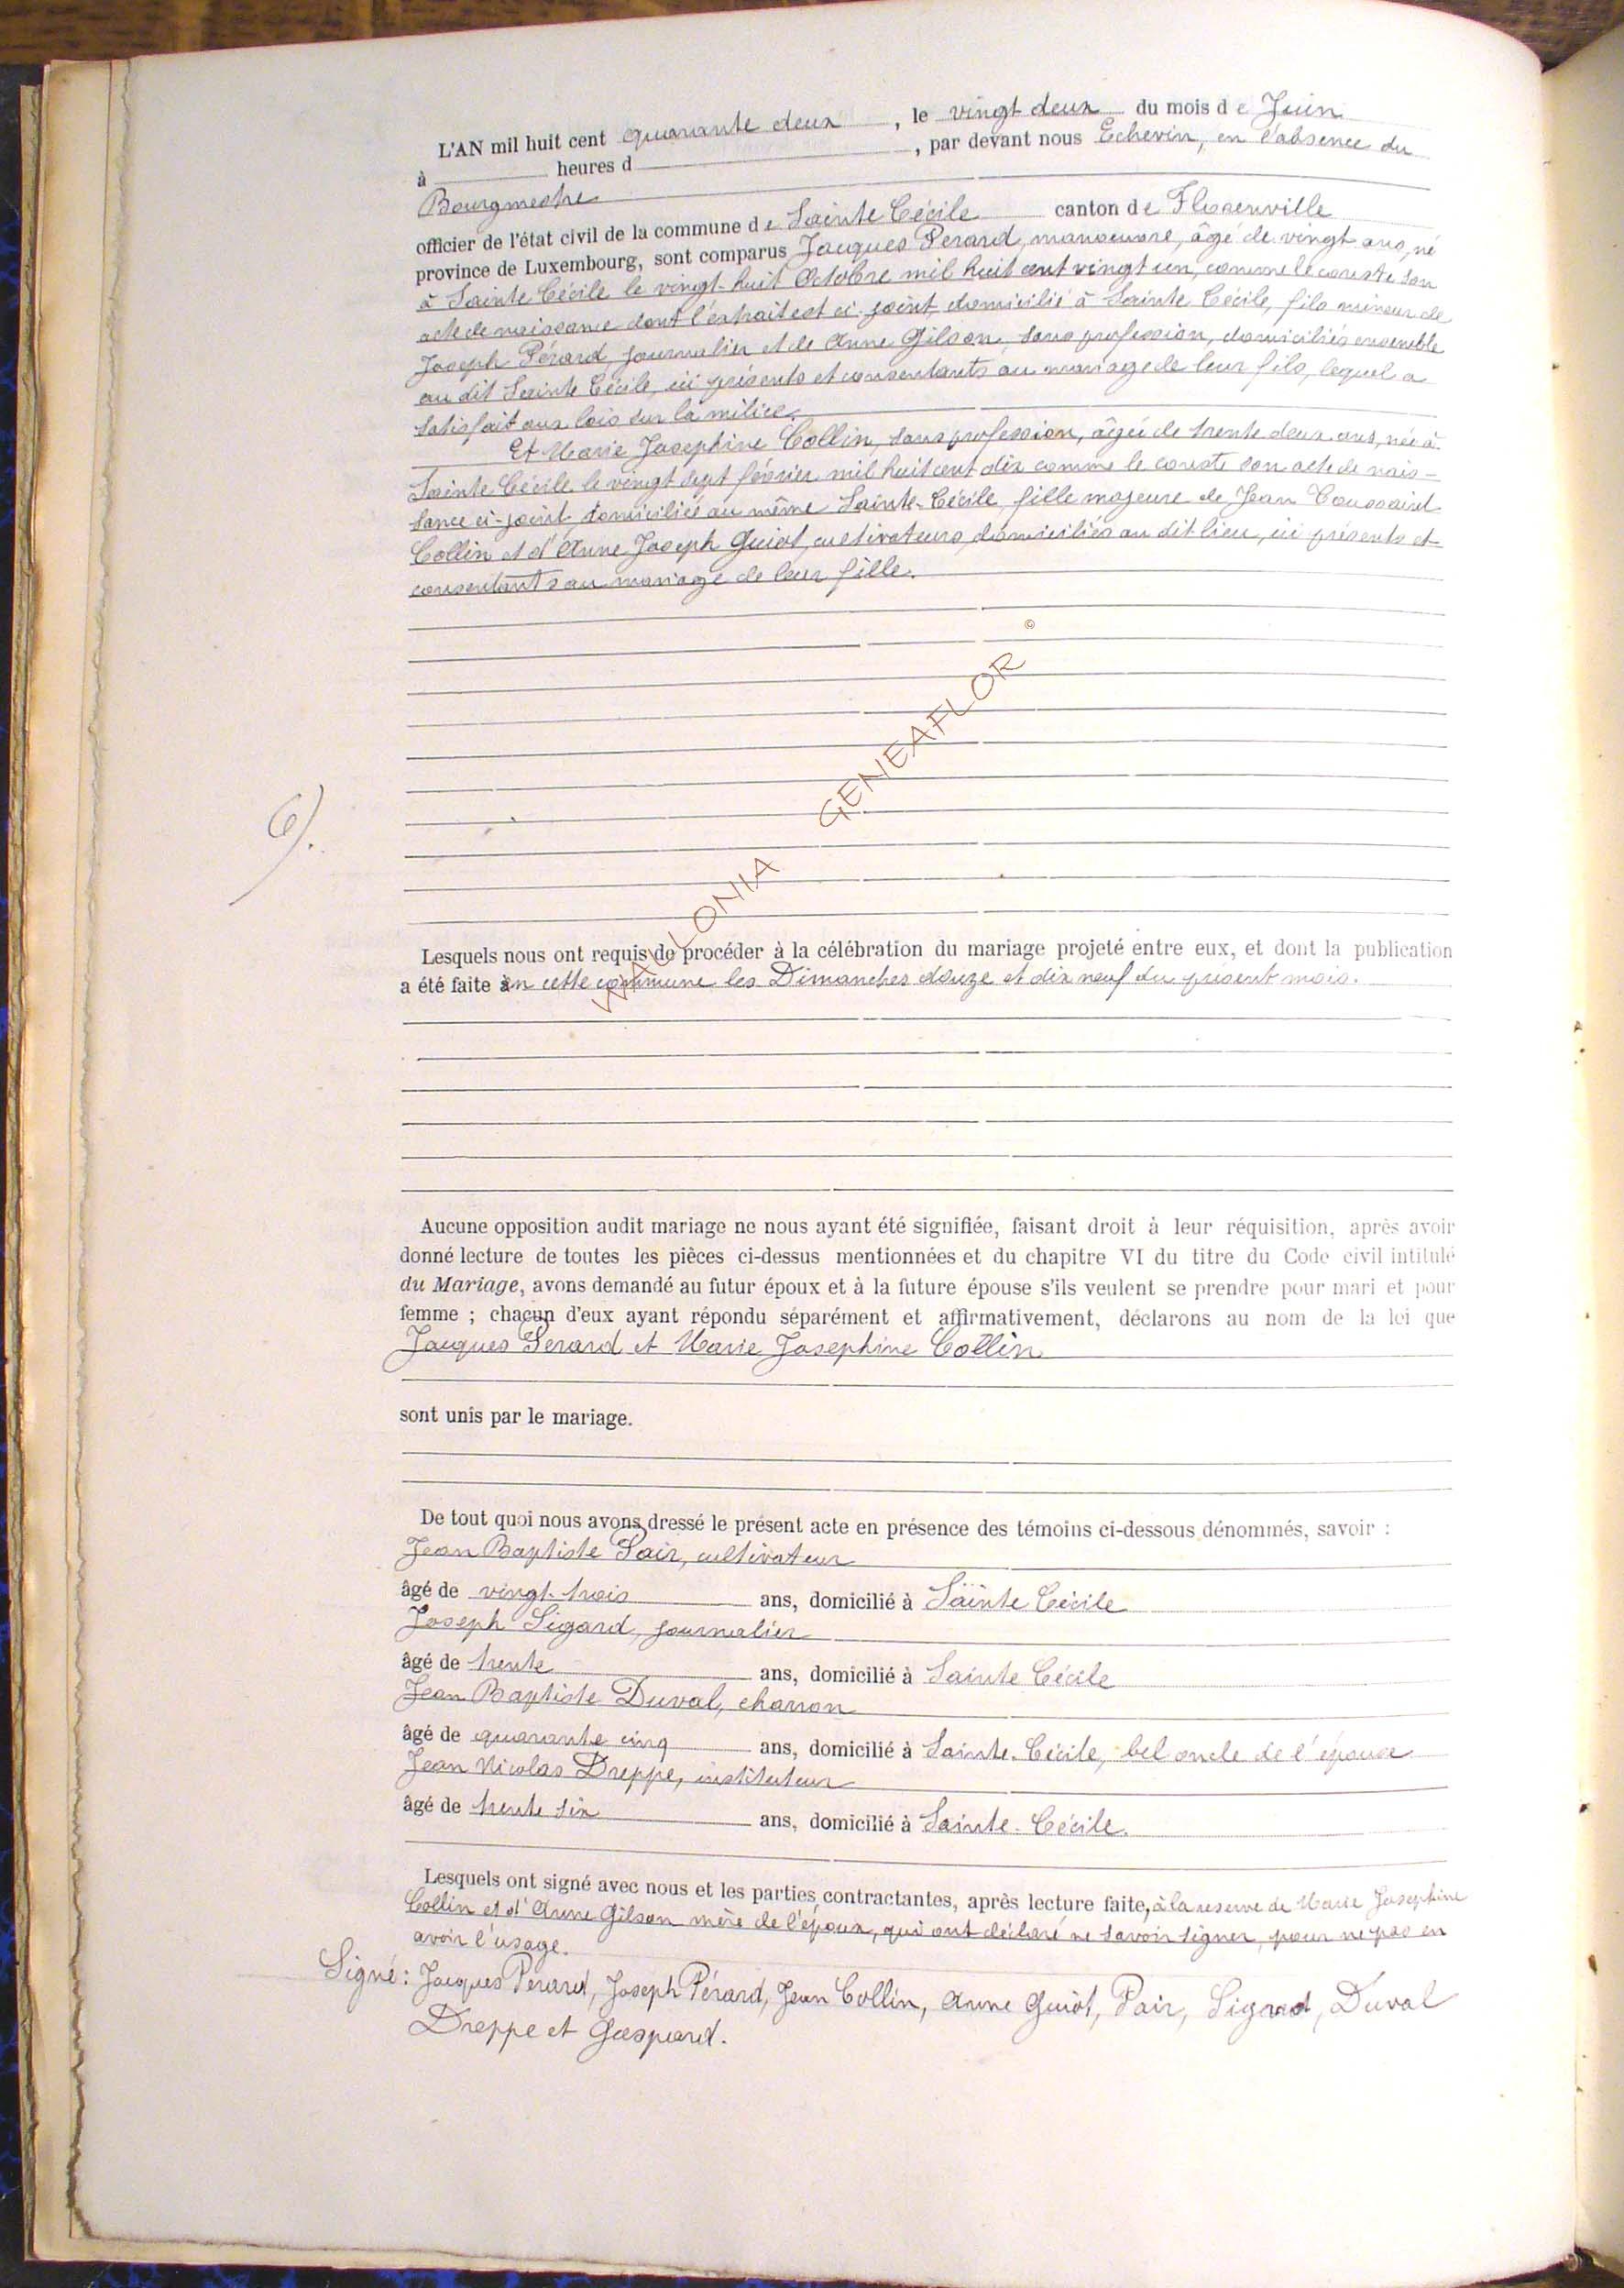 L'AN mil huit cent quarante deux, le vingt deux du mois de Juin
à heures d, par devant nous Echevin, en l'absence du
Bourgmestre
officier de l'état civil de la commune de Sainte Cécile canton de Florenville
province de Luxembourg, sont comparus Jacques Perard, manoeuvre, âgé de vingt ans, né
à Sainte Cécile le vingt-huit Octobre mil huit cent vingt un, comme le conste son
acte de naissance dont l'extrait est ci-joint, domicilié à Sainte Cécile, fils mineur de
Joseph Pérard journalier et de Anne Gilson, sans profession, domiciliés ensemble
au dit Sainte Cécile, ici présents et consentants au mariage de leur fils, lequel a
satisfait aux lois sur la milice.
Et Marie Josephine Collin, sans profession, âgée de trente deux ans, née à
Sainte Cécile le vingt sept février mil huit cent dix comme le conste son acte de nais-
sance ci-joint, domiciliée au même Sainte-Cécile, fille majeure de Jean Toussaint
Collin et d'Anne Joseph Guiot, cultivateurs, domiciliés au dit lieu, ici présents et
consentants au mariage de leur fille.
©
WALLONIA GENEAFLOR
6).
Lesquels nous ont requis de procéder à la célébration du mariage projeté entre eux, et dont la publication
a été faite en cette commune les Dimanches douze et dix neuf du présent mois.
Aucune opposition audit mariage ne nous ayant été signifiée, faisant droit à leur réquisition, après avoir
donné lecture de toutes les pièces ci-dessus mentionnées et du chapitre VI du titre du Code civil intitulé
du Mariage, avons demandé au futur époux et à la future épouse s'ils veulent se prendre pour mari et pour
femme ; chacun d'eux ayant répondu séparément et affirmativement, déclarons au nom de la loi que
Jacques Perard et Marie Josephine Collin
sont unis par le mariage.
De tout quoi nous avons dressé le présent acte en présence des témoins ci-dessous dénommés, savoir :
Jean Baptiste Pair, cultivateur
âgé de vingt-trois ans, domicilié à Sainte Cécile
Joseph Sigard, journalier
âgé de trente ans, domicilié à Sainte Cécile
Jean Baptiste Duval, charron
âgé de quarante cinq ans, domicilié à Sainte-Cécile, bel oncle de l'épouse
Jean Nicolas Dreppe, instituteur
âgé de trente six ans, domicilié à Sainte-Cécile.
Lesquels ont signé avec nous et les parties contractantes, après lecture faite, à la reserve de Marie Josephine
Collin et d'Anne Gilson mère de l'époux, qui ont déclaré ne savoir signer, pour ne pas en
avoir l'usage.
Signé : Jacques Perard, Joseph Pérard, Jean Collin, Anne Guiot, Pair, Sigard, Duval
Dreppe et Gaspard.